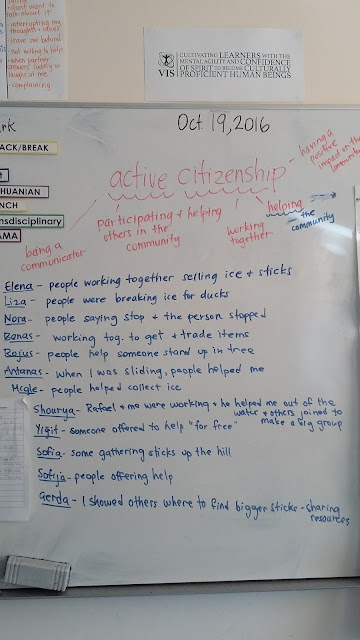 don't want to
talk about it
-interrupting my
thoughts + ideas
-leave me behind
-not willing to help
-when partner
answers rudely or
laughs at me
-complaining
VIS
CULTIVATING LEARNERS WITH THE
MENTAL AGILITY AND CONFIDENCE
OF SPIRIT TO BECOME CULTURALLY
PROFICIENT HUMAN BEINGS
Oct 19, 2016
ACK/BREAK
HUANIAN
NCH
nsdisciplinary
AMA
active citizenship
having a
positive
impact on the
community
helping
the
community
working
together
participating + helping
others in the
community
being a
communicator
Elena - people working together selling ice + sticks
Liza - people were breaking ice for ducks
Nora - people saying stop + the person stopped
Benas - working tog. to get + trade items
Bojus - people help someone stand up in tree
Antanas - when I was sliding, people helped me
Migle - people helped collect ice
Shourya - Rafael + me were working + he helped me out of the
water + others joined to
make a big group
Yigit - someone offered to help "for free"
Sofia - some gathering sticks up the hill
Sofija - people offering help
Gerda - I showed others where to find bigger sticks - sharing
resources